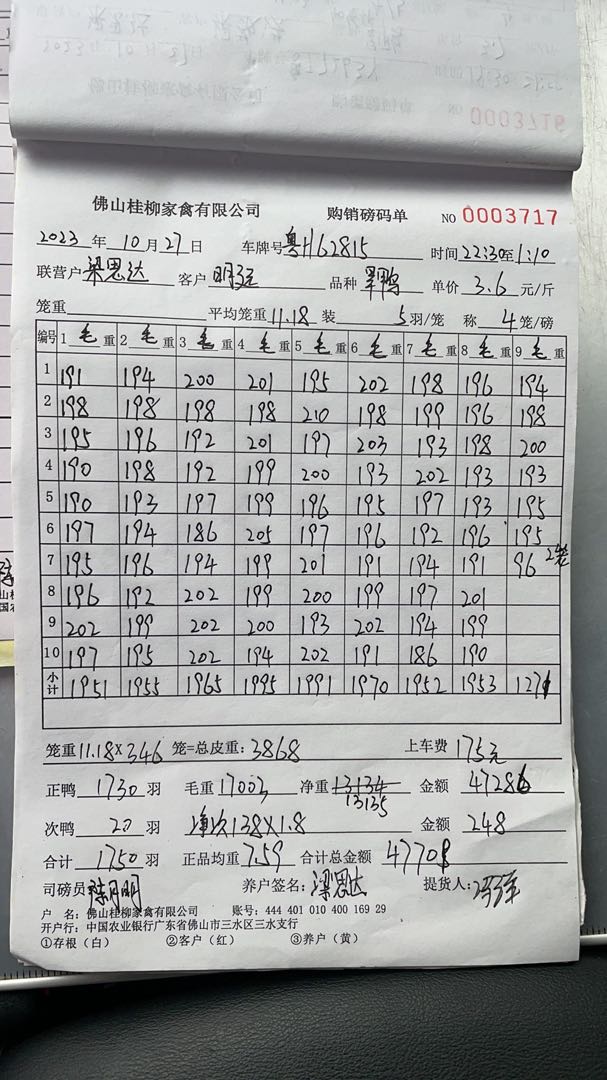 0003716
佛山桂柳家禽有限公司 购销磅码单 NO 0003717
2023年10月27日 车牌号粤H62815 时间22:30至1:10
联营户梁思达 客户明强 品种 鸭 单价3.6元/斤
笼重 平均笼重11.18 装5羽/笼 称4笼/磅
编号 1毛重 2毛重 3毛重 4毛重 5毛重 6毛重 7毛重 8毛重 9毛重
1 191 194 200 201 195 202 198 196 194
2 198 198 198 198 210 198 199 196 198
3 195 196 192 201 197 203 193 198 200
4 190 198 192 199 200 193 202 193 193
5 190 193 197 199 196 195 197 193 195
6 197 194 186 205 197 196 192 196 195
7 195 196 194 199 201 191 194 191 96 2笼
8 196 192 202 199 200 199 197 201
9 202 199 202 200 193 202 194 199
10 197 195 202 194 202 191 186 190
小计 1951 1955 1965 1995 1991 1970 1952 1953 1271
笼重11.18×346笼=总皮重:3868 上车费175元
正鸭1730羽 毛重17003 净重13134 13135 金额47286
次鸭20羽 净次138×1.8 金额248
合计1750羽 正品均重7.59 合计总金额47708
司磅员陈月明 养户签名:梁思达 提货人:
户 名:佛山桂柳家禽有限公司 账号:444 401 010 400 169 29
开户行:中国农业银行广东省佛山市三水区三水支行
①存根(白) ②客户(红) ③养户(黄)